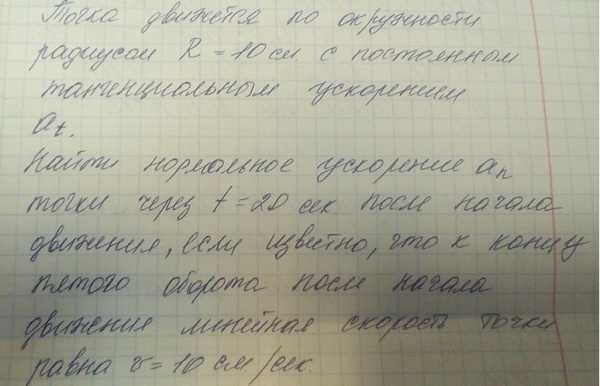 Точка движется по окружности
радиусом R = 10 см с постоянным
тангенциальным ускорением
at.
Найти нормальное ускорение an
точки через t = 20 сек после начала
движения, если известно, что к концу
пятого оборота после начала
движения линейная скорость точки
равна v = 10 см/сек.